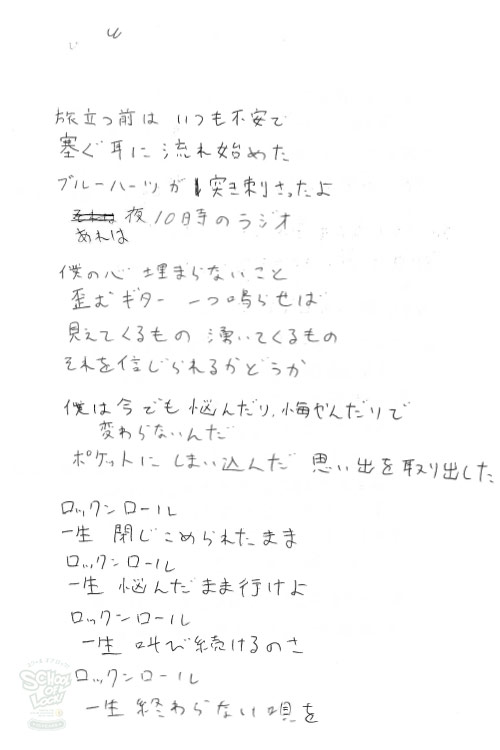 旅立つ前は いつも不安で
塞ぐ耳に 流れ始めた
ブルーハーツが 突き刺さったよ
夜10時のラジオ
あれは
僕の心 埋まらないこと
歪むギター 一つ鳴らせば
見えてくるもの 湧いてくるもの
それを信じられるかどうか
僕は今でも悩んだり、悔やんだりで
変わらないんだ
ポケットに しまい込んだ 思い出を取り出した
ロックンロール
一生 閉じこめられたまま
ロックンロール
一生 悩んだまま行けよ
ロックンロール
一生 叫び続けるのさ
ロックンロール
一生 終わらない唄を
SCHOOL OF LOCK!